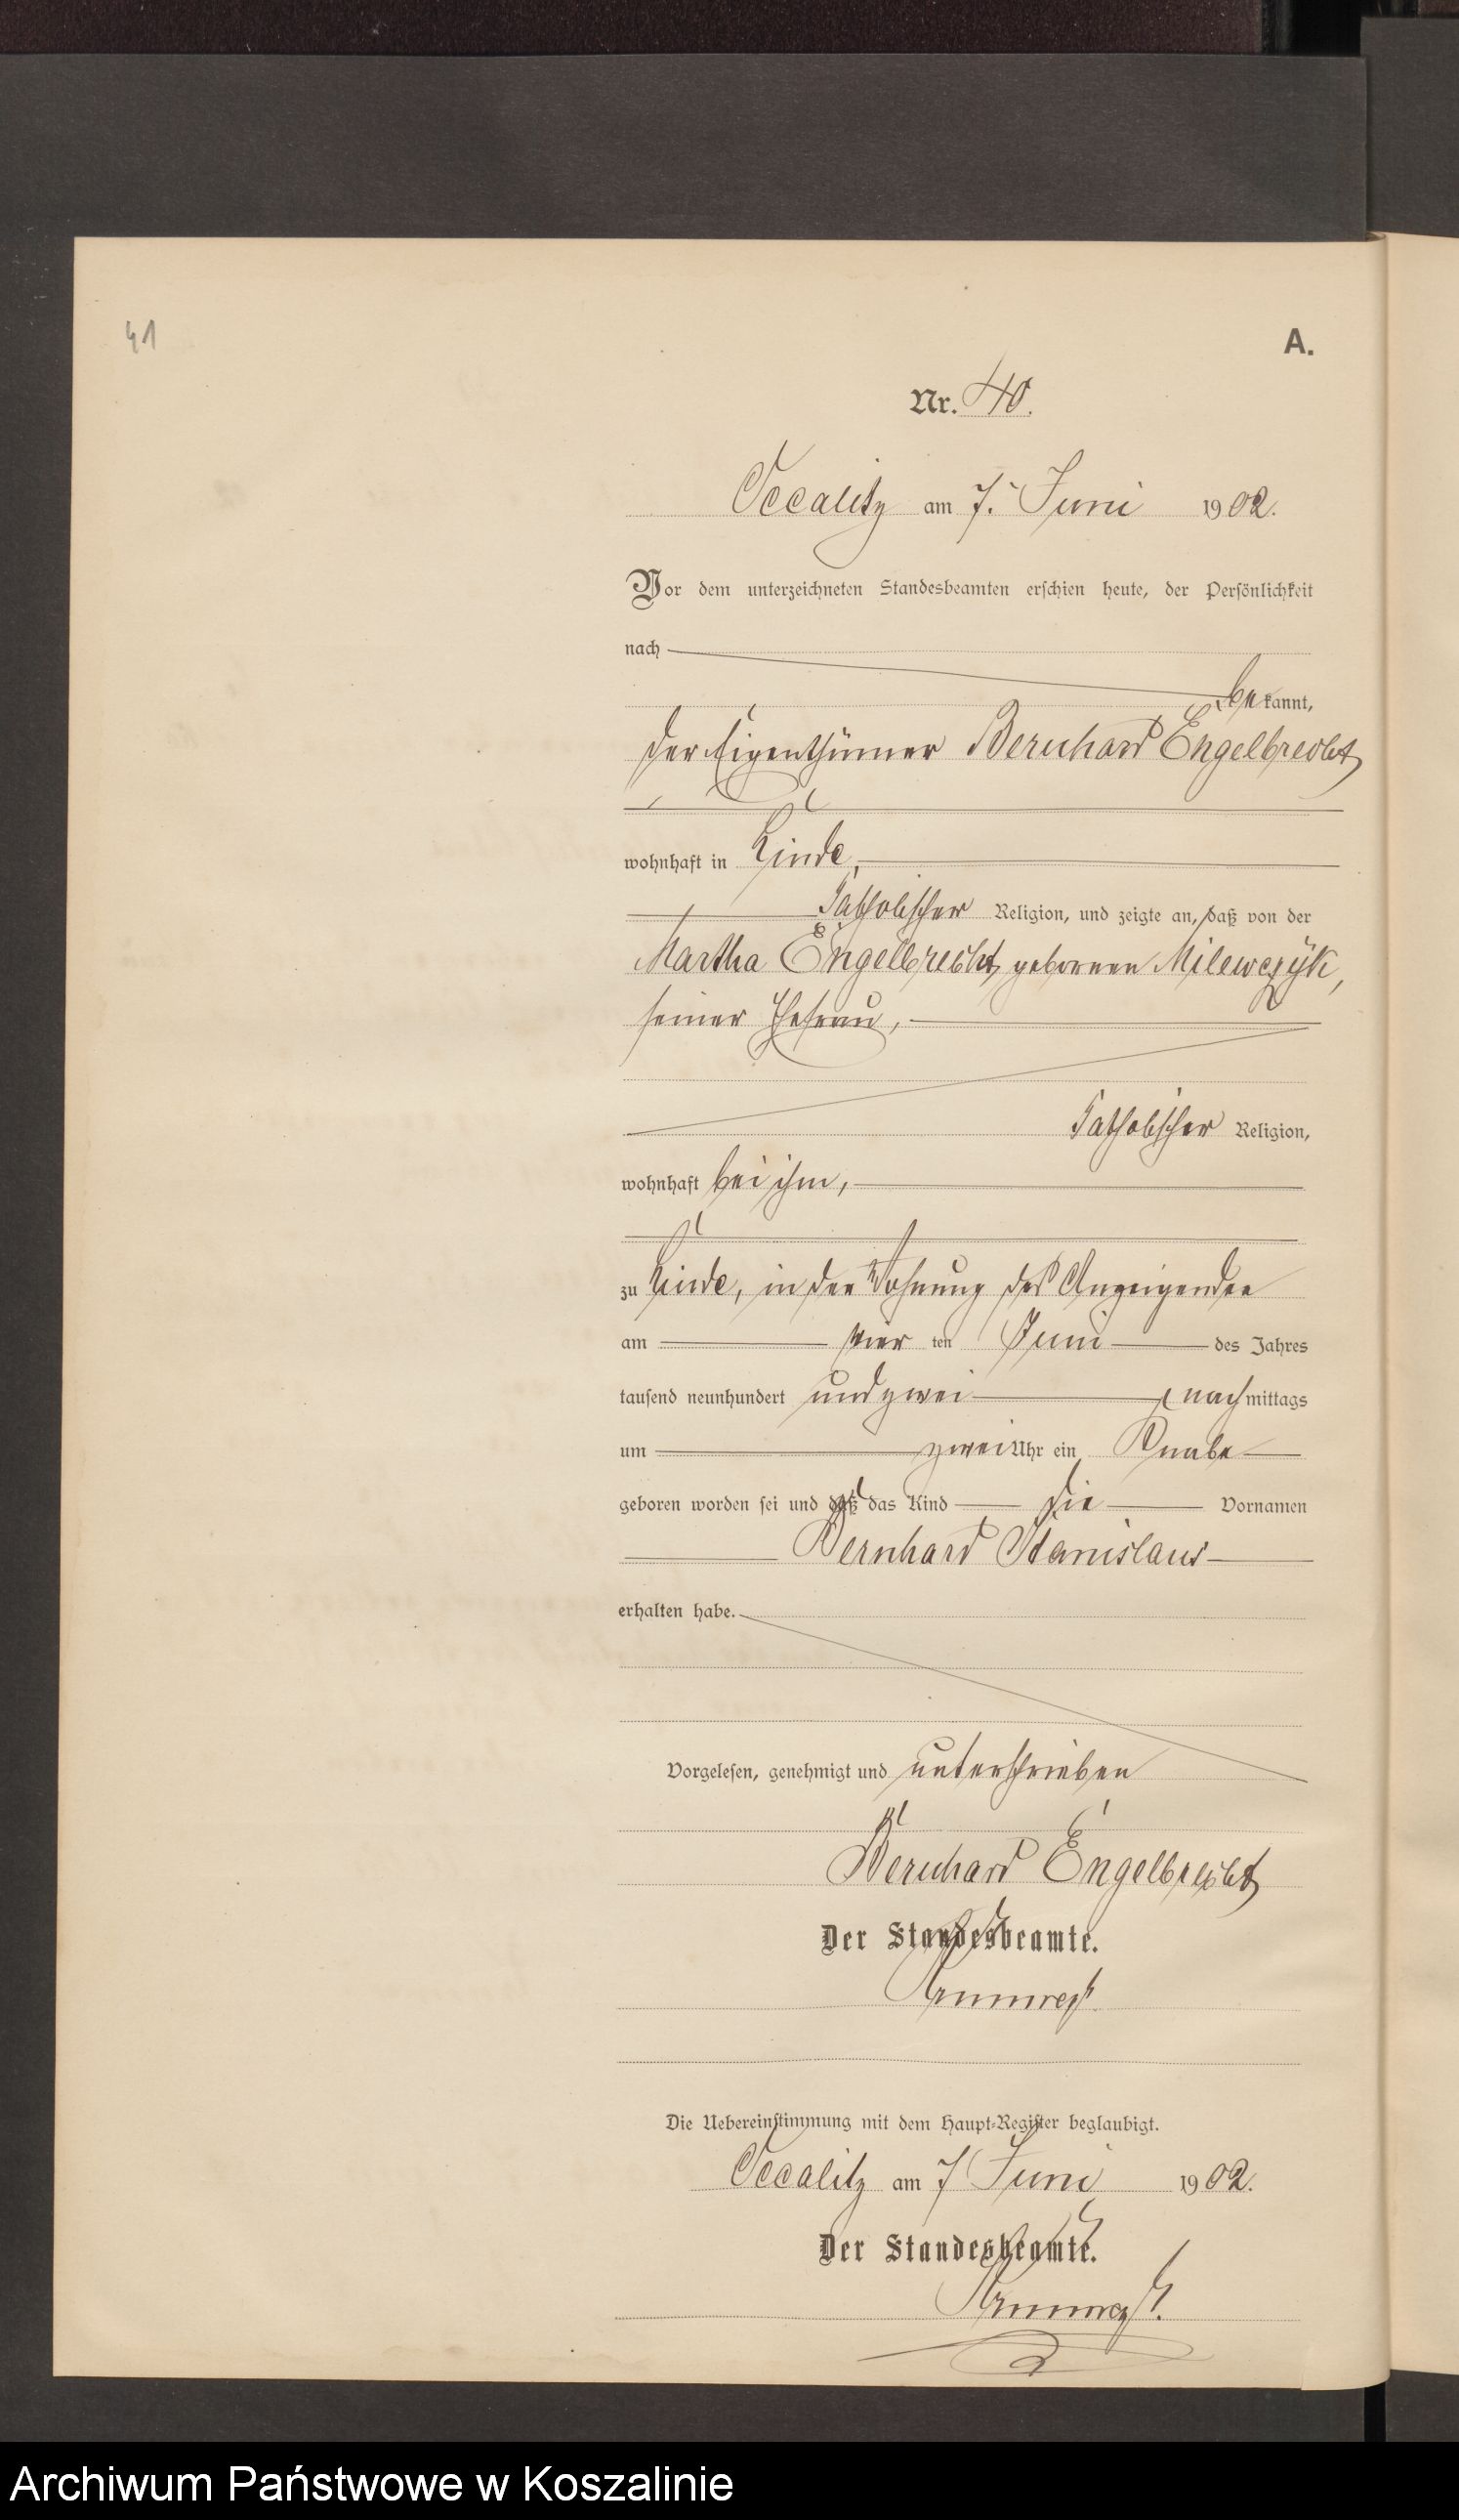 41
A.
Nr. 40.
Oscalitz am 7. Juni 1902.
Vor dem unterzeichneten Standesbeamten erschien heute, der Persönlichkeit
nach
bekannt,
der Eigenthümer Bernhard Engelbrecht
wohnhaft in Linde,
katholischer Religion, und zeigte an, daß von der
Martha Engelbrecht, geborenen Milewczÿk,
seiner Ehefrau,
katholischer Religion,
wohnhaft bei ihm,
zu Linde, in der Wohnung des Anzeigenden
am vier ten Juni des Jahres
tausend neunhundert und zwei, nachmittags
um zwei Uhr ein Knabe
geboren worden sei und daß das Kind die Vornamen
Bernhard Stanislaus
erhalten habe.
Vorgelesen, genehmigt und unterschrieben
Bernhard Engelbrecht
Der Standesbeamte.
Die Uebereinstimmung mit dem Haupt-Register beglaubigt.
Oscalitz am 7 Juni 1902.
Der Standesbeamte.
Archiwum Państwowe w Koszalinie